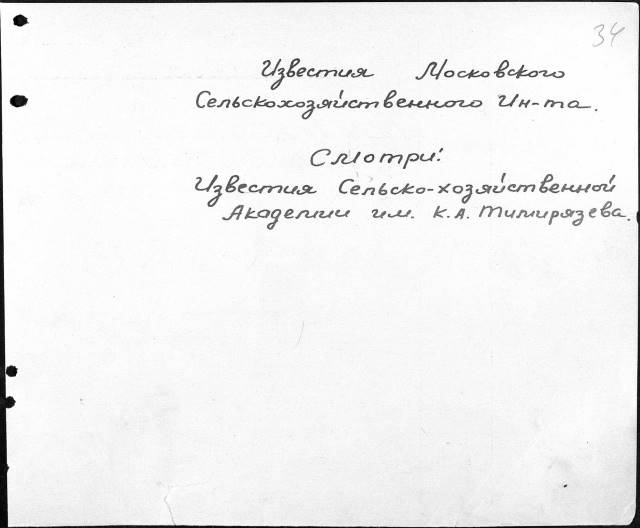 34
Известия Московского
Сельскохозяйственного Ин-та.
Смотри:
Известия Сельско-хозяйственной
Академии им. К.А. Тимирязева.